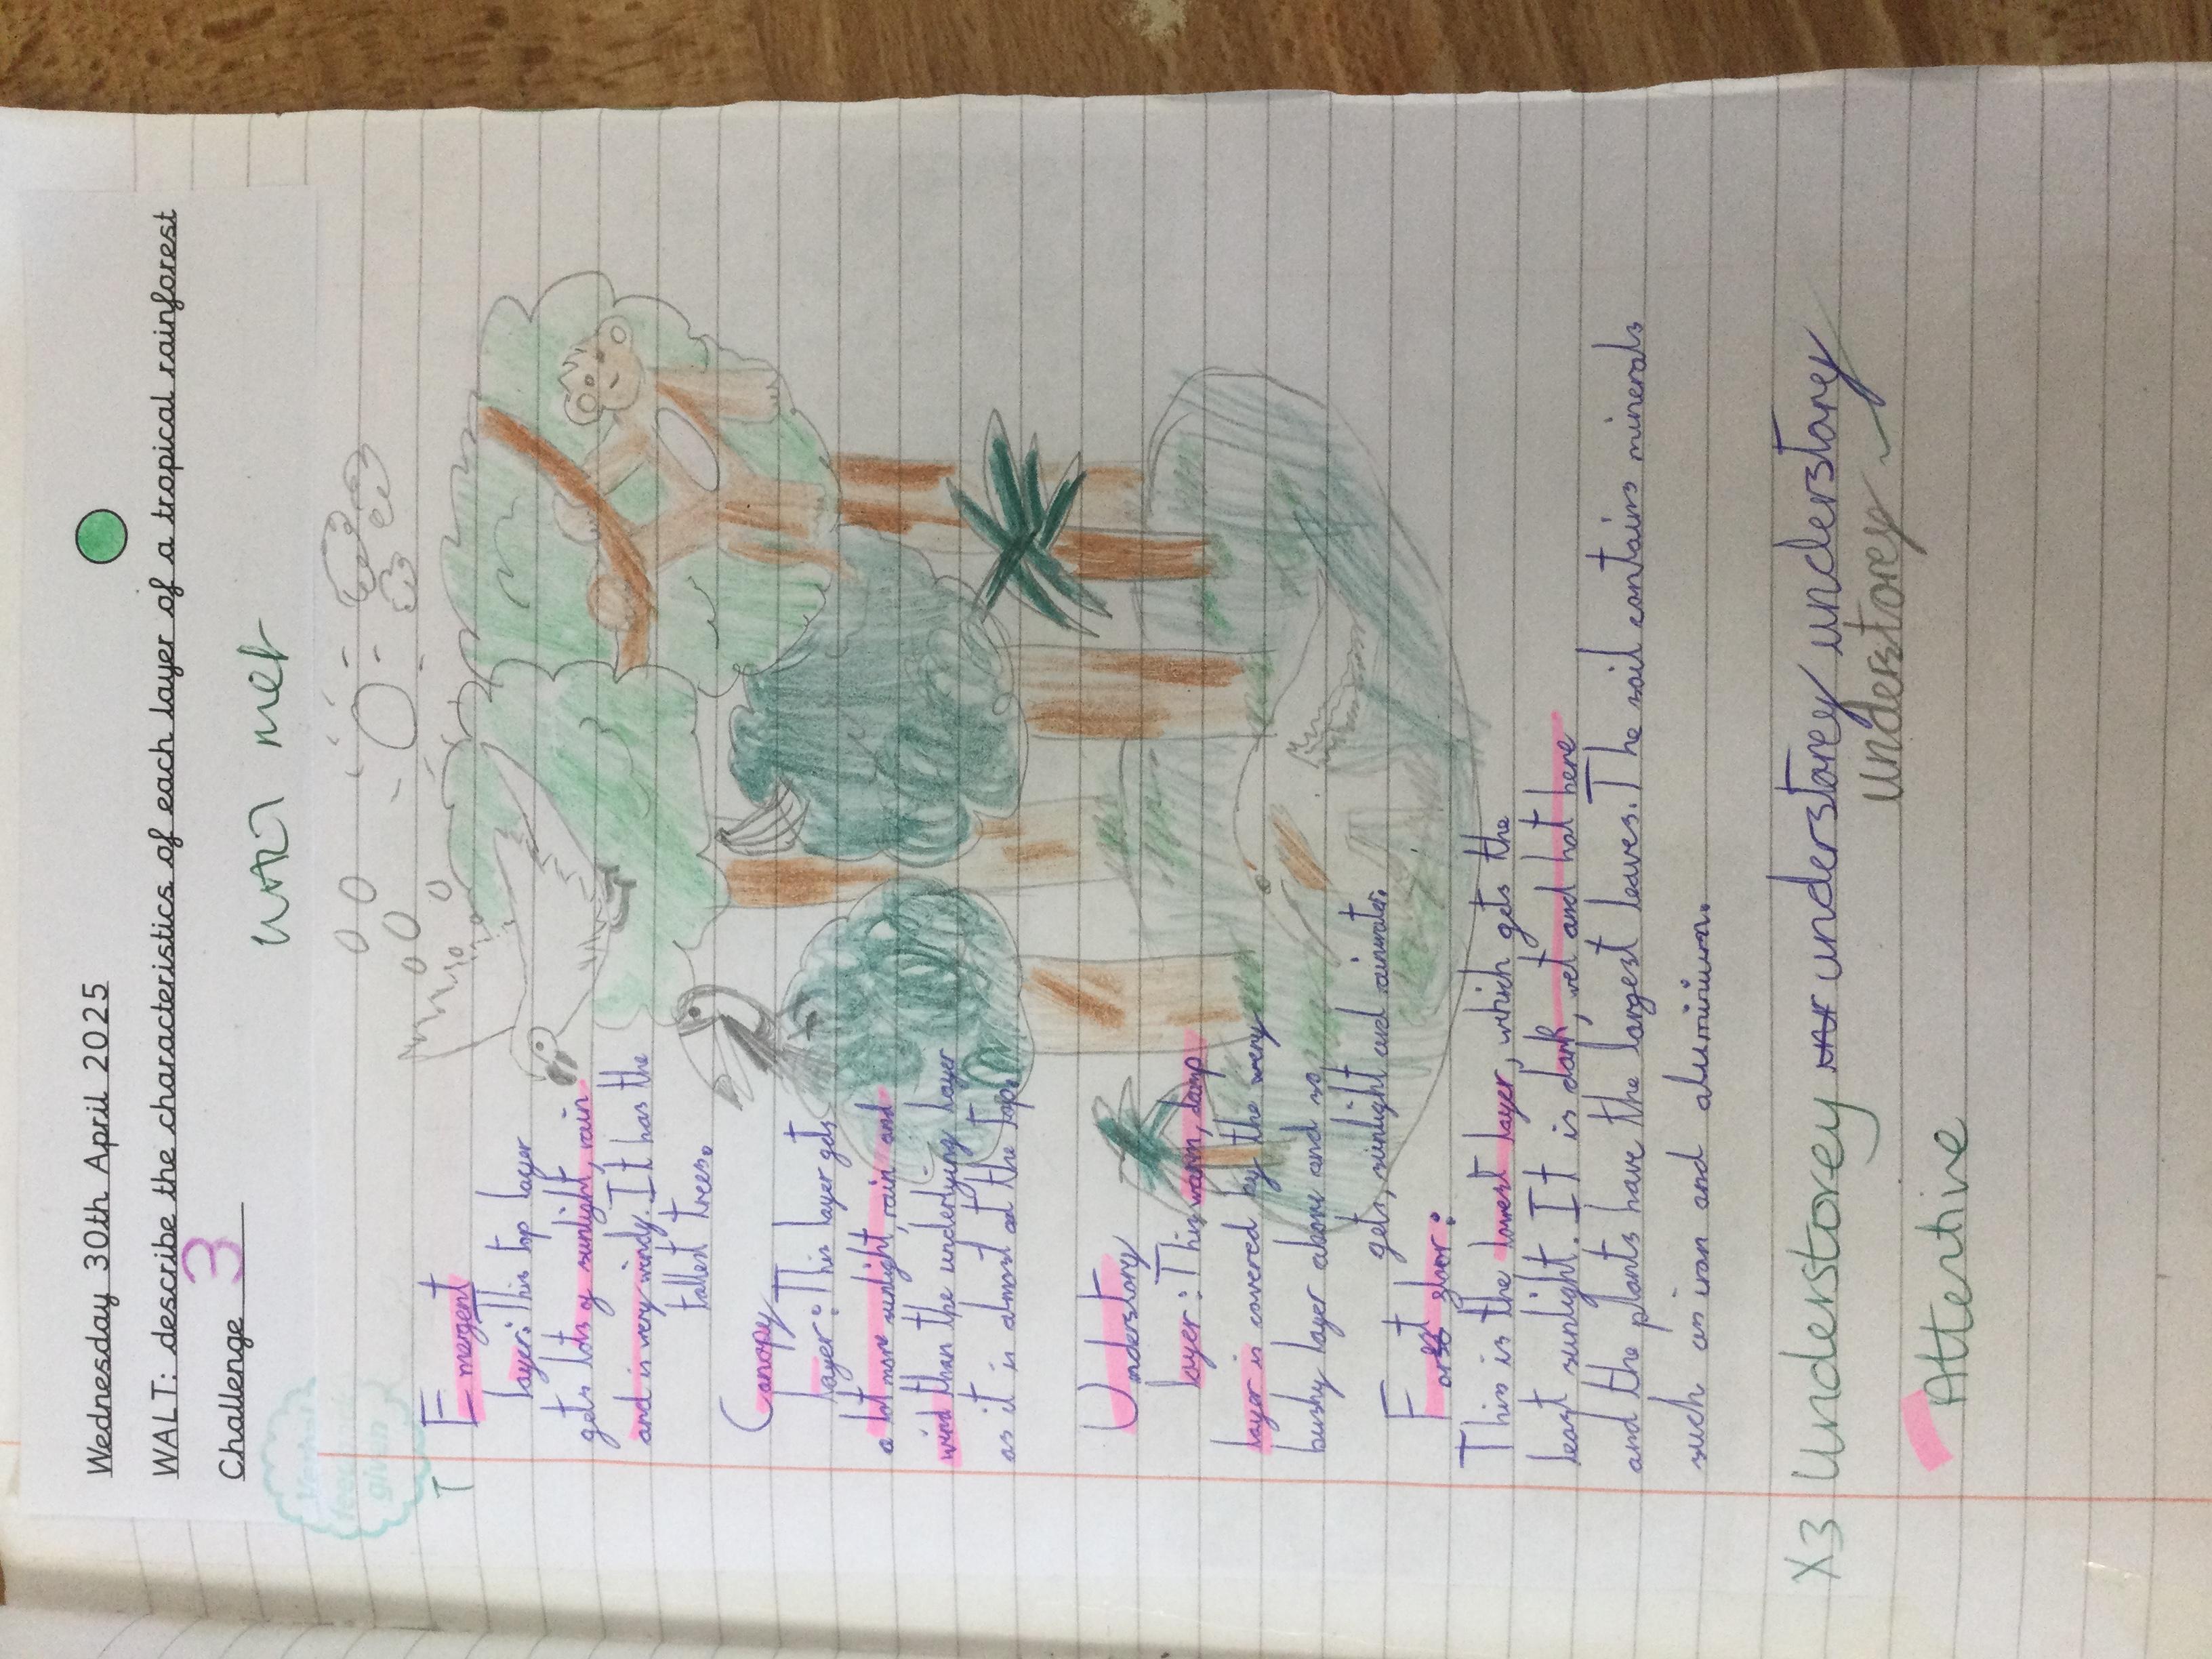 Wednesday 30th April 2025
WALT: describe the characteristics of each layer of a tropical rainforest
Challenge 3
WALT met
Verbal
feedback
given
T
Emergent
layer: This top layer
gets lots of sunlight, rain
and is very windy. It has the
tallest trees.
Canopy
layer: This layer gets
a lot more sunlight, rain and
wind than the underlying layer
as it is almost at the top.
Understory
layer: This warm, damp
layer is covered by the very
bushy layer above and so
gets, sunlight and rainwater.
Forest floor:
This is the lowest layer, which gets the
least sunlight. It is dark, wet and hot here
and the plants have the largest leaves. The soil contains minerals
such as iron and aluminium.
X3 Understorey understorey understorey understorey
understorey
Attentive